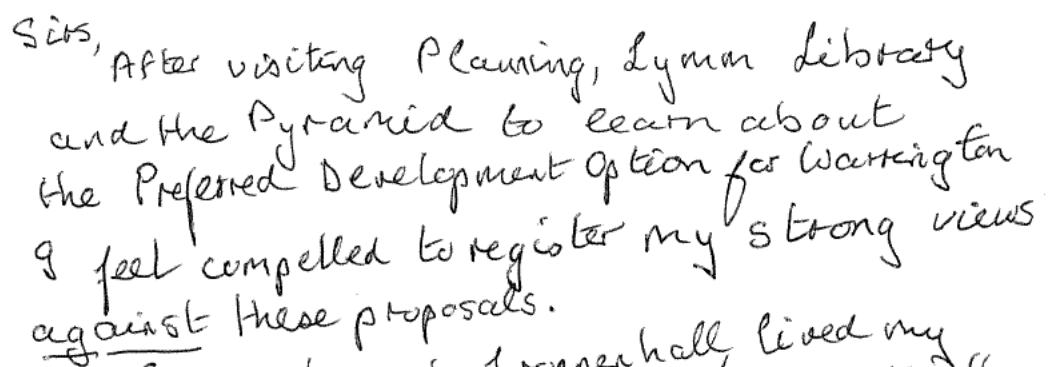 Sirs,
After visiting Planning, Lymm Library
and the Pyramid to learn about
the Preferred Development Option for Warrington
I feel compelled to register my strong views
against these proposals.
lived my